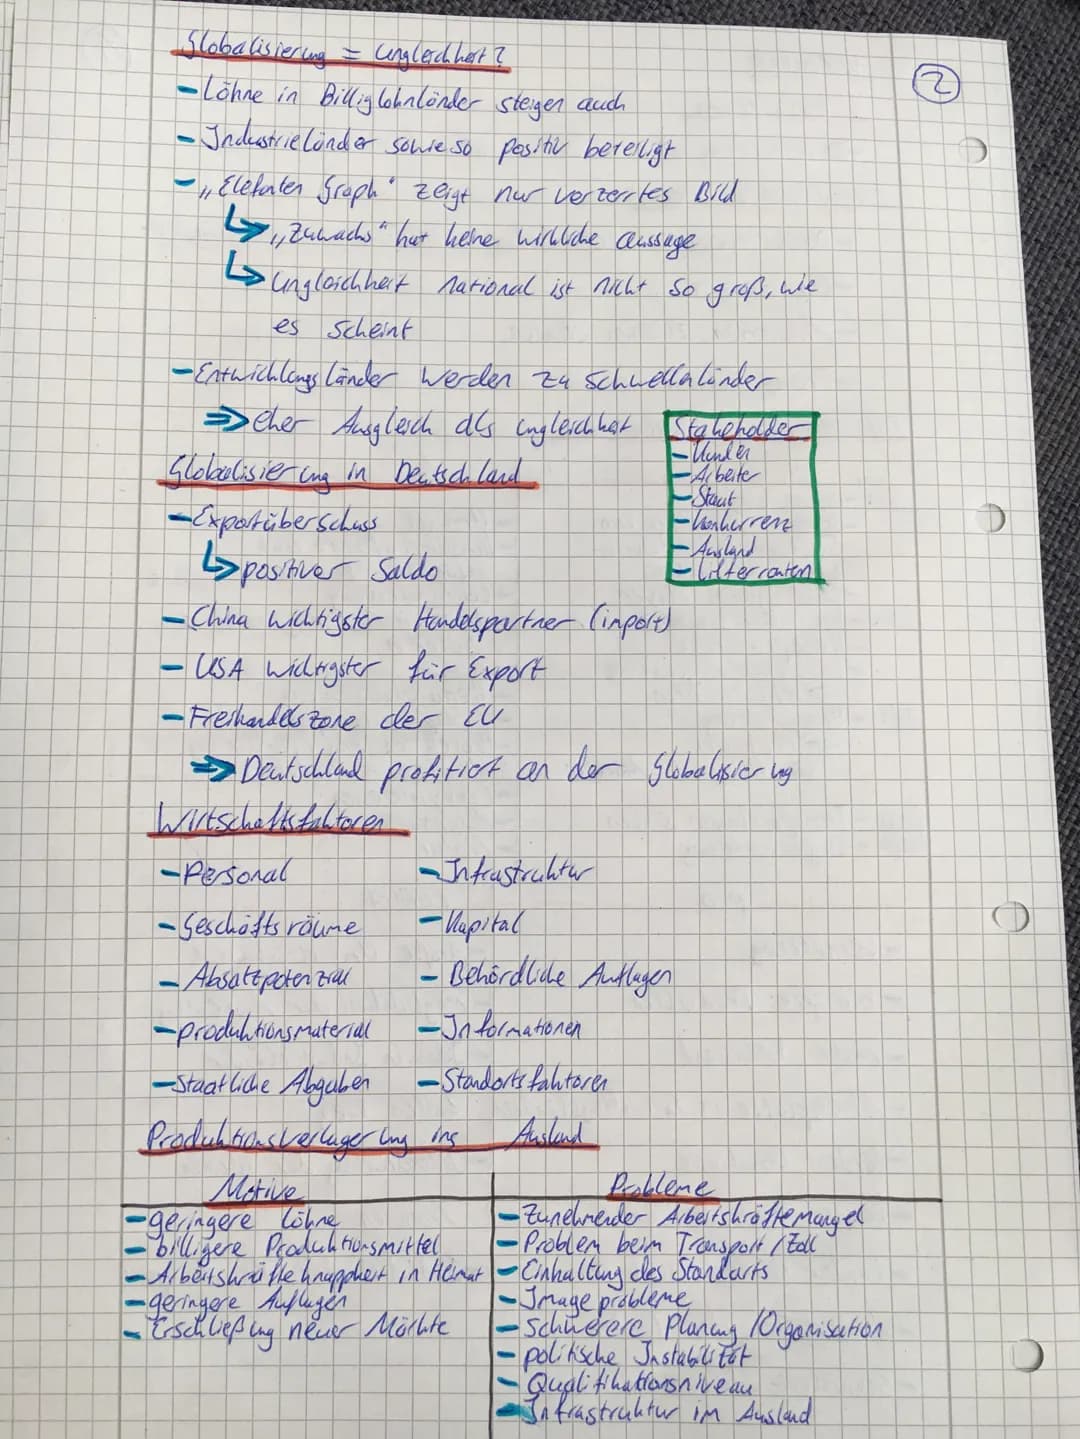 Globalisierung = Ungleichheit?
2
- Löhne in Billiglohnländer steigen auch
- Industrieländer sowieso positiv beteiligt
- „Elefanten Graph" zeigt nur verzerrtes Bild
↳ „Zuwachs" hat keine wirkliche aussage
↳ Ungleichheit national ist nicht so groß, wie
es scheint
- Entwicklungsländer werden zu Schwellenländer
⇒ eher Ausgleich als ungleichheit
Stakeholder
- Kunden
- Arbeiter
- Staat
- Konkurrenz
- Ausland
- Lieferranten
Globalisierung in Deutschland
- Exportüberschuss
↳ positiver Saldo
- China wichtigster Handelspartner (import)
- USA wichtigster für Export
- Freihandelszone der EU
⇒ Deutschland profitiert an der Globalisierung
Wirtschaftsfaktoren
- Personal - Infrastruktur
- Geschäftsräume - Kapital
- Absatzpotenzial - Behördliche Auflagen
- produktionsmaterial - Informationen
- Staatliche Abgaben - Standortsfaktoren
Produktionsverlagerung ins Ausland
Motive
- geringere Löhne
- billigere Produktionsmittel
- Arbeitskräfteknappheit in Heimat
- geringere Auflagen
- Erschließung neuer Märkte
Probleme
- Zunehmender Arbeitskräftemangel
- Problem beim Transport / Zoll
- Einhaltung des Standarts
- Imageprobleme
- Schwerere Planung / Organisation
- politische Instabilität
- Qualifikationsniveau
- Infrastruktur im Ausland